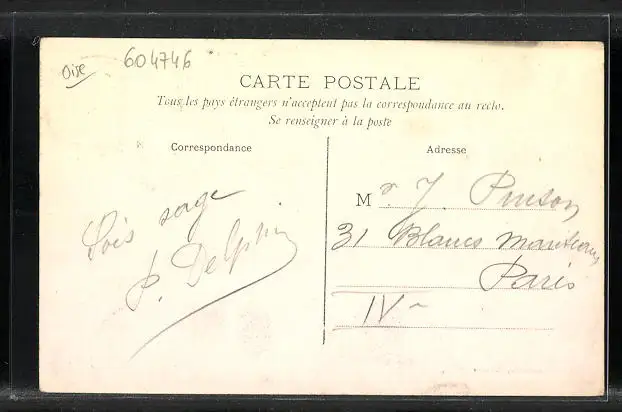 Oise
604746
CARTE POSTALE
Tous les pays étrangers n'acceptent pas la correspondance au recto.
Se renseigner à la poste
Correspondance
Adresse
Sois sage
P. Delphin
Mr. J. Pinson
31 Blancs Manteaux
Paris
IVe